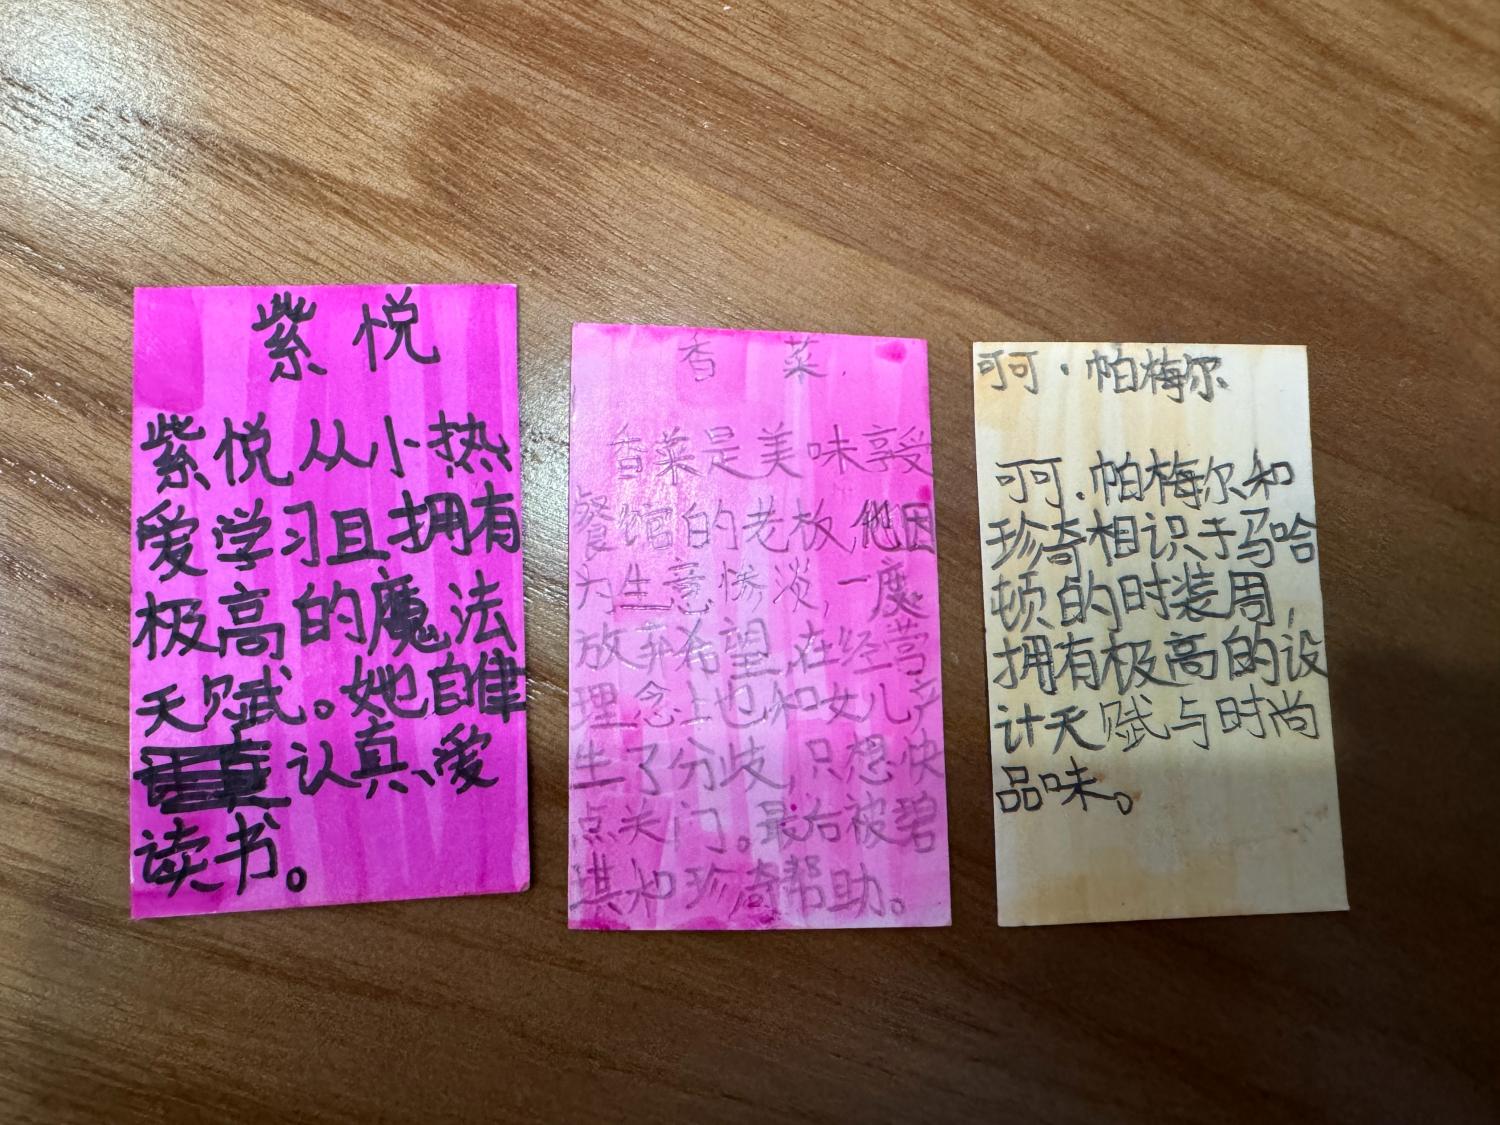 紫悦
紫悦从小热
爱学习且拥有
极高的魔法
天赋。她自律
认真、爱
读书。
香菜
香菜是美味享受
餐馆的老板,他因
为生意惨淡,一度
放弃希望,在经营
理念上也和女儿产
生了分歧,只想快
点关门。最后被碧
琪和珍奇帮助。
可可·帕梅尔
可可·帕梅尔和
珍奇相识于马哈
顿的时装周,
拥有极高的设
计天赋与时尚
品味。